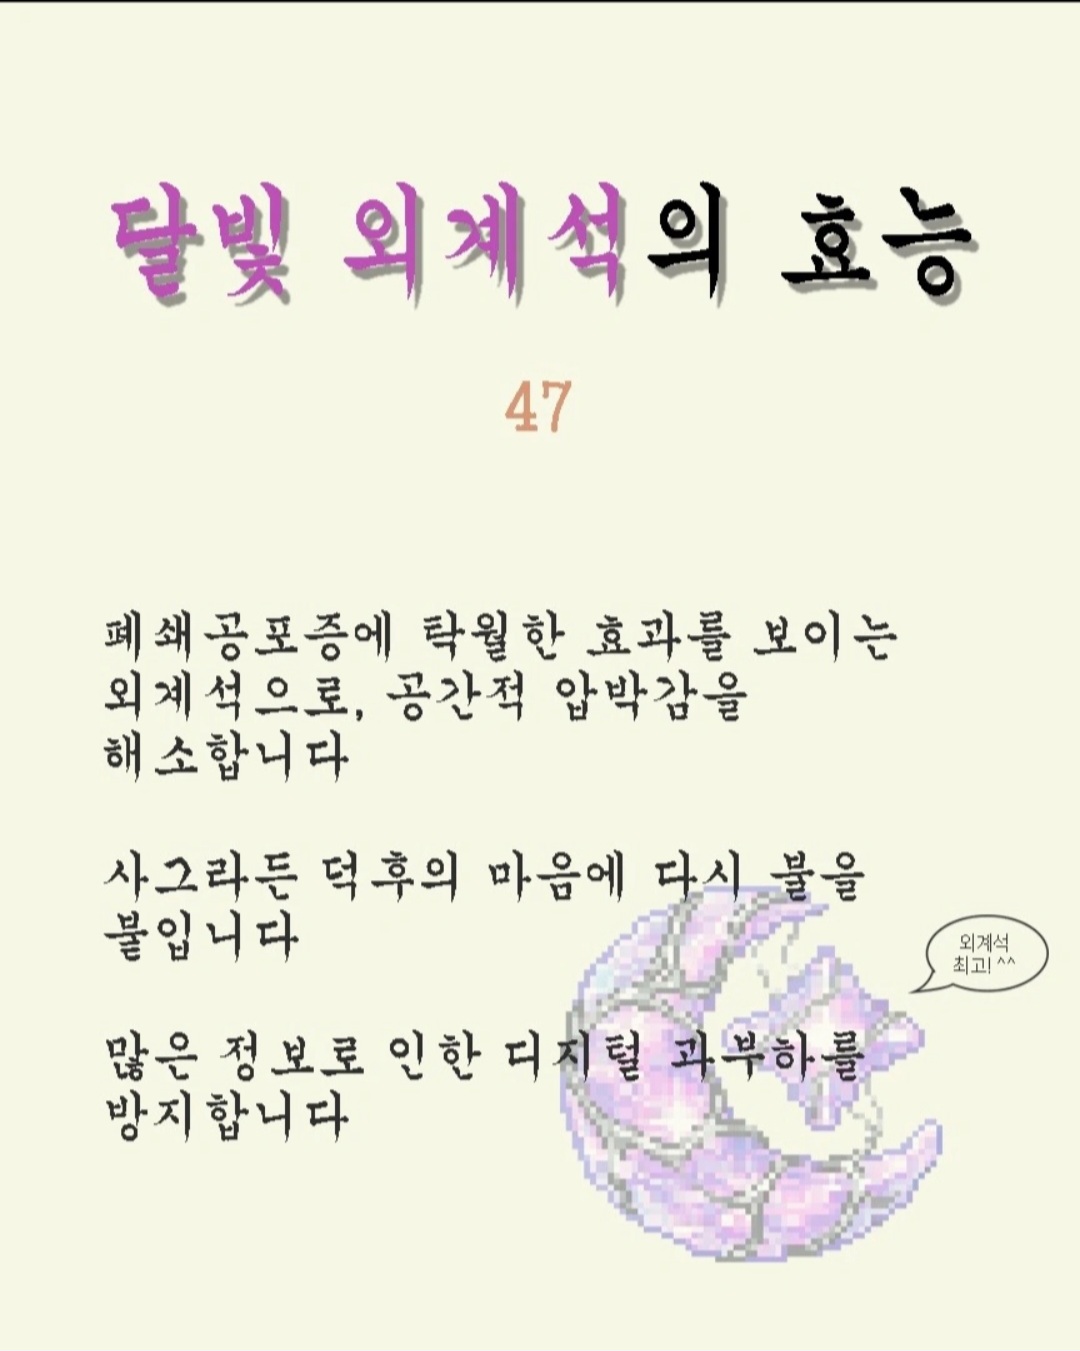 달빛 외계석의 효능
47
폐쇄공포증에 탁월한 효과를 보이는
외계석으로, 공간적 압박감을
해소합니다
사그라든 덕후의 마음에 다시 불을
붙입니다
외계석
최고! ^^
많은 정보로 인한 디지털 과부하를
방지합니다